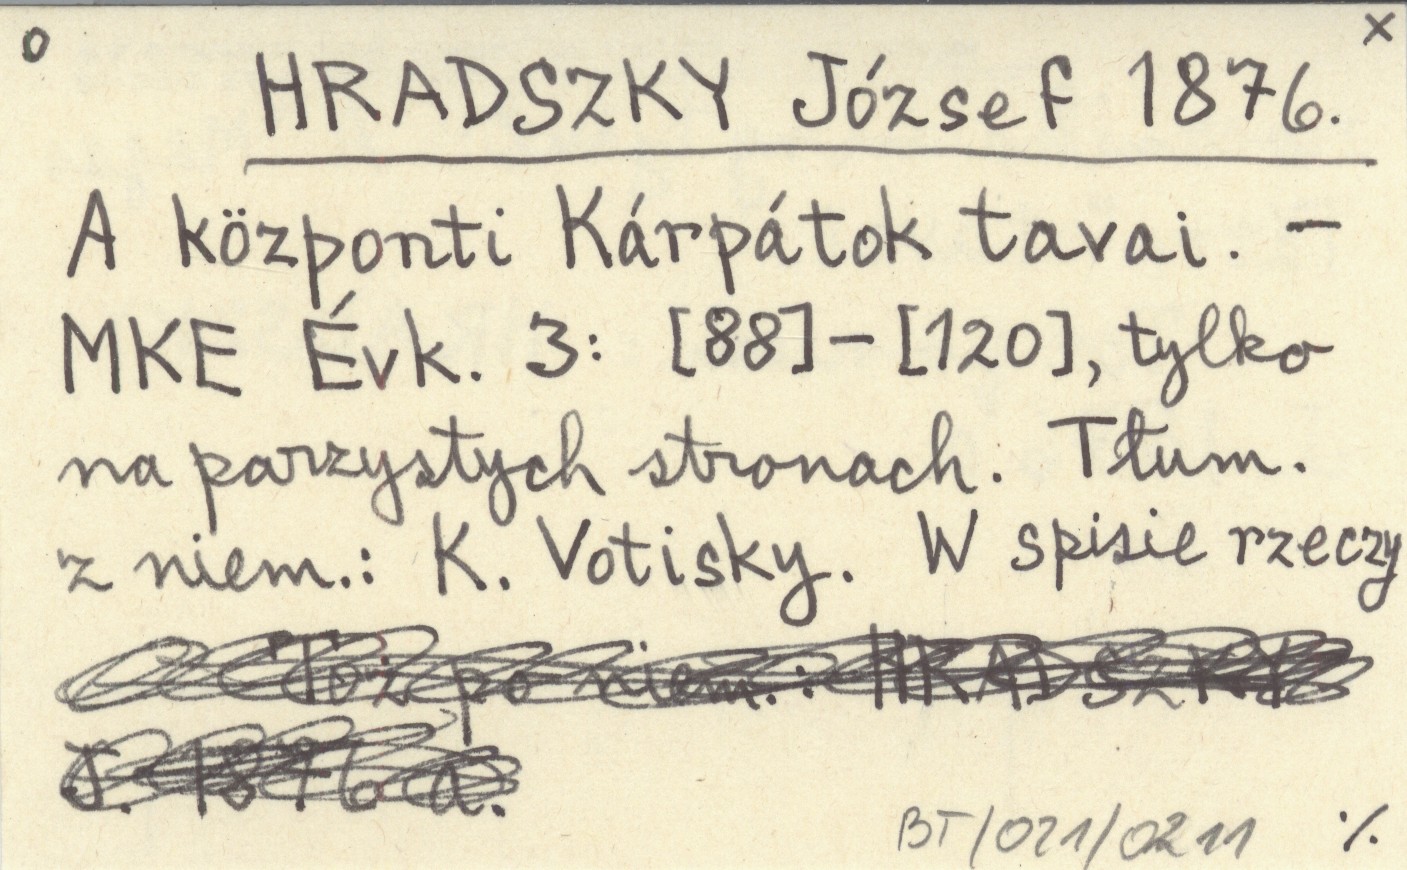 o x
HRADSZKY József 1876.
A központi Kárpátok tavai. –
MKE Évk. 3: [88]–[120], tylko
na parzystych stronach. Tłum.
z niem.: K. Votisky. W spisie rzeczy
Toż po niem.: HRADSZKY
J. 1876 a.
BT/021/0211 ·/.